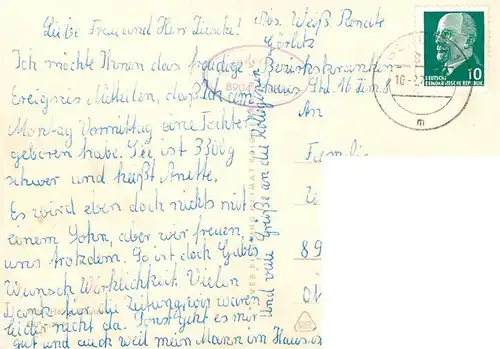 Liebe Frau und Herr Ziesche!
Ich möchte Ihnen das freudige
Ereignis Mitteilen, daß ich am
Montag Vormittag eine Tochter
geboren habe. Sie ist 3300g
schwer und heißt Anette.
Es wird eben doch nichts mit
einem Sohn, aber wir freuen
uns trotzdem. So ist doch Gabis
Wunsch Wirklichkeit. Vielen
Dank für die Zeitung, wir waren
leider nicht da. Sonst geht es mir
gut und auch weil mein Mann im Haus is
Und viele Grüße an die Kolleginnen
Abs. Weiß Renate
Görlitz
Bezirkskranken
haus
An
Familie
89
DEUTSCHE
DEMOKRATISCHE REPUBLIK
10